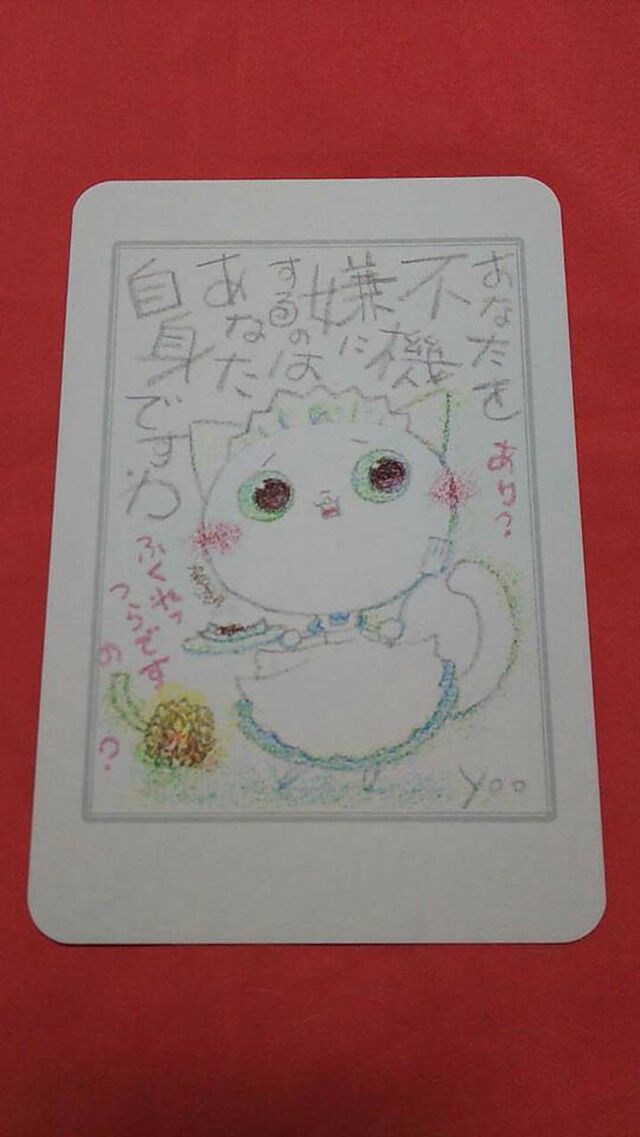 あなたを
不機
嫌に
するのは
あなた
自身ですわ
あり?
ふくれっ
つらです
の?
yoo